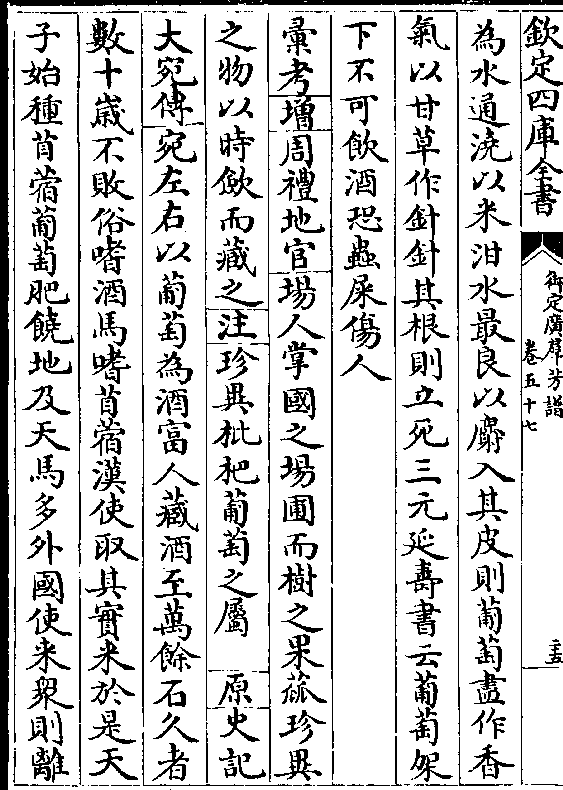 欽定四庫全書
御定廣羣芳譜
卷五十七
二五
為水通澆以米泔水最良以麝入其皮則葡萄盡作香
氣以甘草作針針其根則立死三元延壽書云葡萄架
下不可飲酒恐蟲屎傷人
彚考增周禮地官場人掌國之場圃而樹之果蓏珍異
之物以時斂而藏之注珍異枇杷葡萄之屬 原史記
大宛傳宛左右以葡萄為酒富人藏酒至萬餘石久者
數十歲不敗俗嗜酒馬嗜苜蓿漢使取其實來於是天
子始種苜蓿葡萄肥饒地及天馬多外國使来衆則離